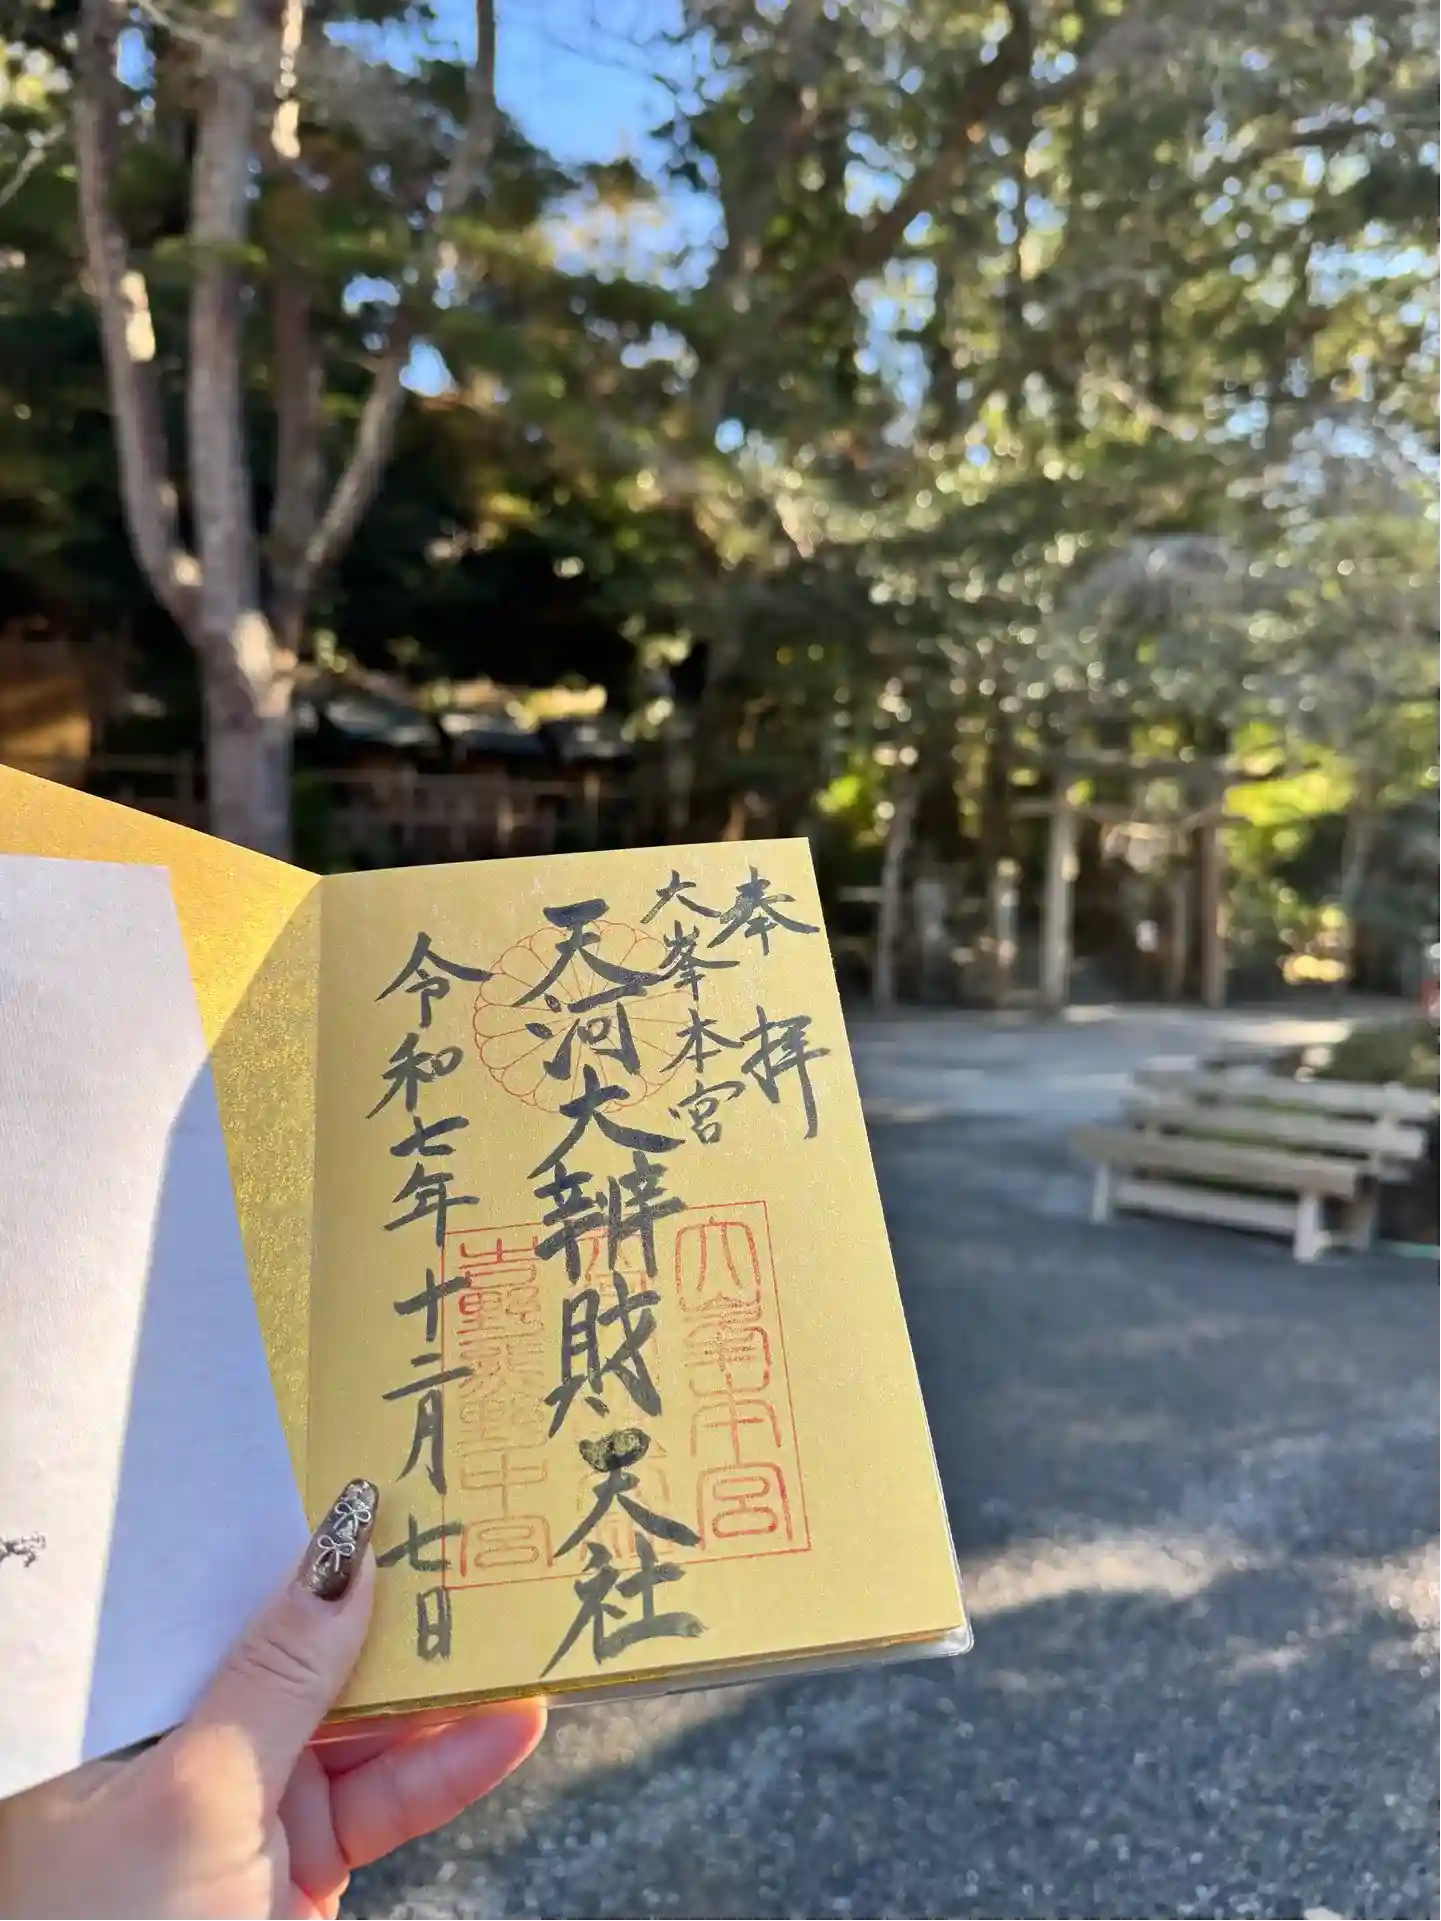 奉拝
大峯本宮
天河大辨財天社
令和七年十二月七日
大峯本宮
吉野熊野中宮